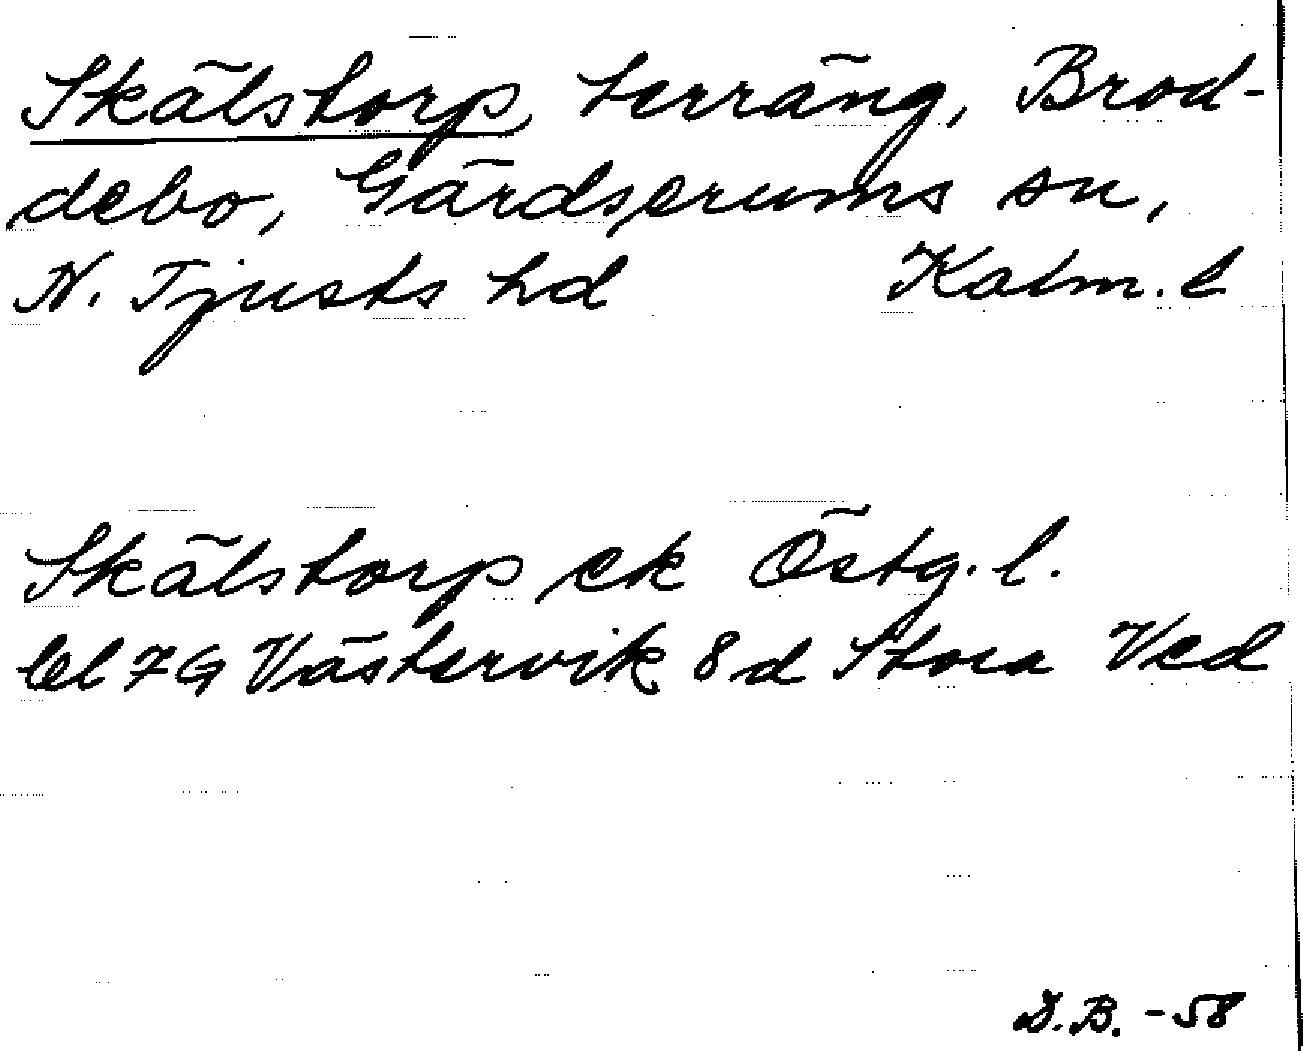 Skälstorp, terräng, Brod-
debo, Gärdserums sn,
N. Tjusts hd Kalm. l
Skälstorp ek Östg. l.
bl 7G Västervik 8d Stora Ved
D.B. -58